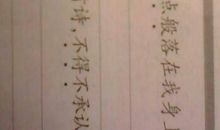 点般落在我身上
诗，不得不承认